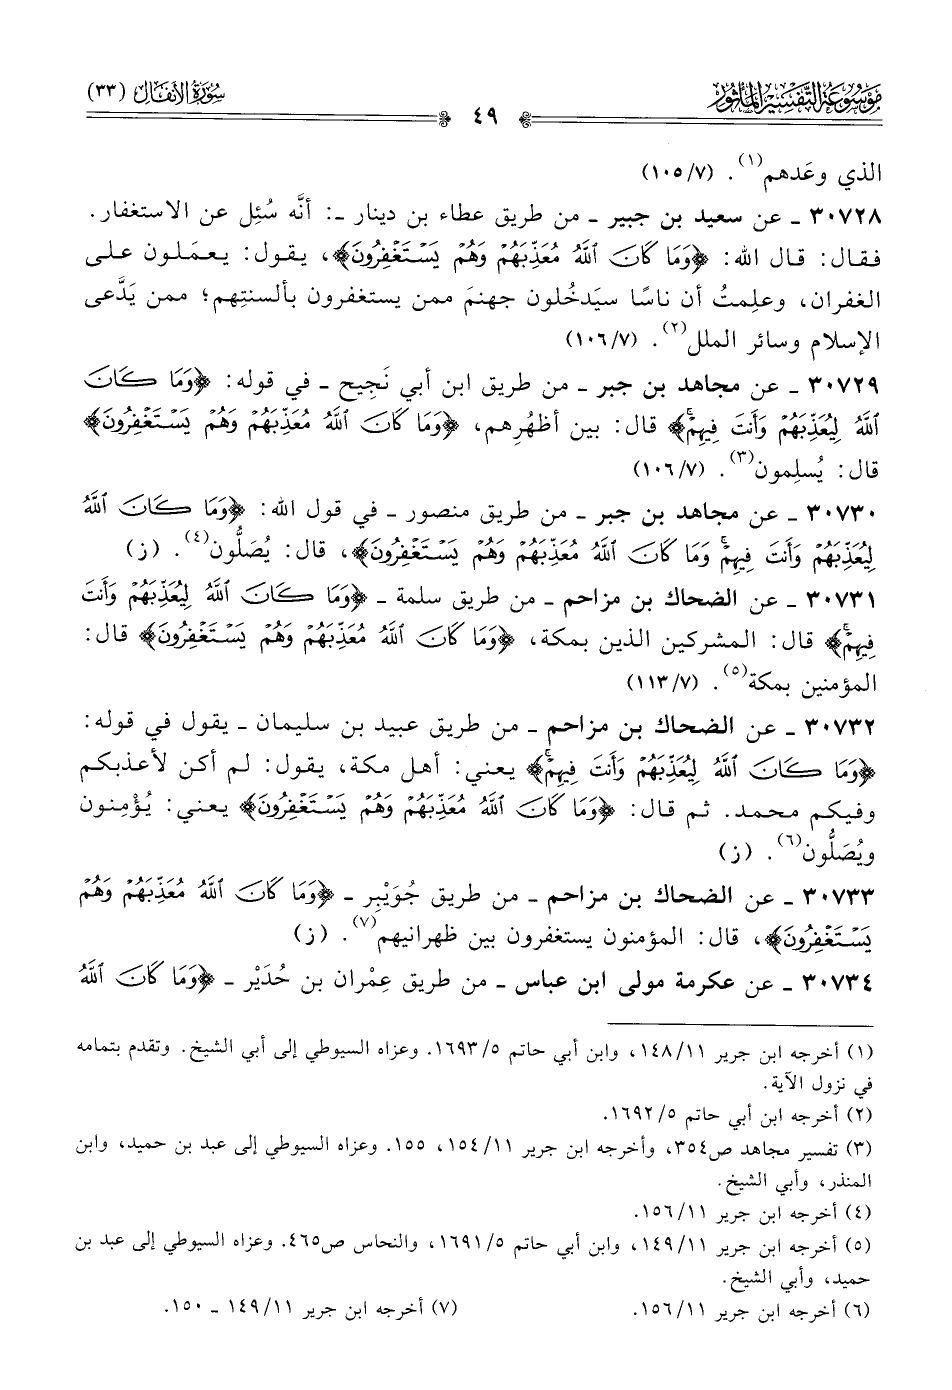 مَوْسُوعَةُ التَّفْسِيْرِ المَأْثُورِ
سُورَةُ الأَنفَال (٣٣)
٤٩
الذي وعَدهم(١). (٧/ ١٠٥)
٣٠٧٢٨ ـ عن سعيد بن جبير ـ من طريق عطاء بن دينار ـ: أنَّه سُئِل عن الاستغفار.
فقال: قال الله: ﴿وَمَا كَانَ ٱللَّهُ مُعَذِّبَهُمْ وَهُمْ يَسْتَغْفِرُونَ﴾، يقول: يعمَلون على
الغفران، وعلِمتُ أن ناسًا سيَدخُلون جهنمَ ممن يستغفرون بألسنتِهم؛ ممن يَدَّعى
الإسلام وسائر الملل(٢). (٧/ ١٠٦)
٣٠٧٢٩ ـ عن مجاهد بن جبر ـ من طريق ابن أبي نَجيح ـ في قوله: ﴿وَمَا كَانَ
ٱللَّهُ لِيُعَذِّبَهُمْ وَأَنتَ فِيهِمْۚ﴾ قال: بين أظهُرِهم، ﴿وَمَا كَانَ ٱللَّهُ مُعَذِّبَهُمْ وَهُمْ يَسْتَغْفِرُونَ﴾
قال: يُسلِمون(٣). (٧/ ١٠٦)
٣٠٧٣٠ ـ عن مجاهد بن جبر ـ من طريق منصور ـ في قول الله: ﴿وَمَا كَانَ ٱللَّهُ
لِيُعَذِّبَهُمْ وَأَنتَ فِيهِمْۚ وَمَا كَانَ ٱللَّهُ مُعَذِّبَهُمْ وَهُمْ يَسْتَغْفِرُونَ﴾، قال: يُصَلُّون(٤). (ز)
٣٠٧٣١ ـ عن الضحاك بن مزاحم ـ من طريق سلمة ـ ﴿وَمَا كَانَ ٱللَّهُ لِيُعَذِّبَهُمْ وَأَنتَ
فِيهِمْۚ﴾ قال: المشركين الذين بمكة، ﴿وَمَا كَانَ ٱللَّهُ مُعَذِّبَهُمْ وَهُمْ يَسْتَغْفِرُونَ﴾ قال:
المؤمنين بمكة(٥). (٧/ ١١٣)
٣٠٧٣٢ ـ عن الضحاك بن مزاحم ـ من طريق عبيد بن سليمان ـ يقول في قوله:
﴿وَمَا كَانَ ٱللَّهُ لِيُعَذِّبَهُمْ وَأَنتَ فِيهِمْۚ﴾ يعني: أهل مكة، يقول: لم أكن لأعذبكم
وفيكم محمد. ثم قال: ﴿وَمَا كَانَ ٱللَّهُ مُعَذِّبَهُمْ وَهُمْ يَسْتَغْفِرُونَ﴾ يعني: يُؤْمِنون
ويُصَلُّون(٦). (ز)
٣٠٧٣٣ ـ عن الضحاك بن مزاحم ـ من طريق جُوَيْبِر ـ ﴿وَمَا كَانَ ٱللَّهُ مُعَذِّبَهُمْ وَهُمْ
يَسْتَغْفِرُونَ﴾، قال: المؤمنون يستغفرون بين ظهرانيهم(٧). (ز)
٣٠٧٣٤ ـ عن عكرمة مولى ابن عباس ـ من طريق عِمْران بن حُدَيْر ـ ﴿وَمَا كَانَ ٱللَّهُ
(١) أخرجه ابن جرير ١١/ ١٤٨، وابن أبي حاتم ٥/ ١٦٩٣. وعزاه السيوطي إلى أبي الشيخ. وتقدم بتمامه
في نزول الآية.
(٢) أخرجه ابن أبي حاتم ٥/ ١٦٩٢.
(٣) تفسير مجاهد ص٣٥٤، وأخرجه ابن جرير ١١/ ١٥٤، ١٥٥. وعزاه السيوطي إلى عبد بن حميد، وابن
المنذر، وأبي الشيخ.
(٤) أخرجه ابن جرير ١١/ ١٥٦.
(٥) أخرجه ابن جرير ١١/ ١٤٩، وابن أبي حاتم ٥/ ١٦٩١، والنحاس ص٤٦٥. وعزاه السيوطي إلى عبد بن
حميد، وأبي الشيخ.
(٦) أخرجه ابن جرير ١١/ ١٥٦. (٧) أخرجه ابن جرير ١١/ ١٤٩ ـ ١٥٠.